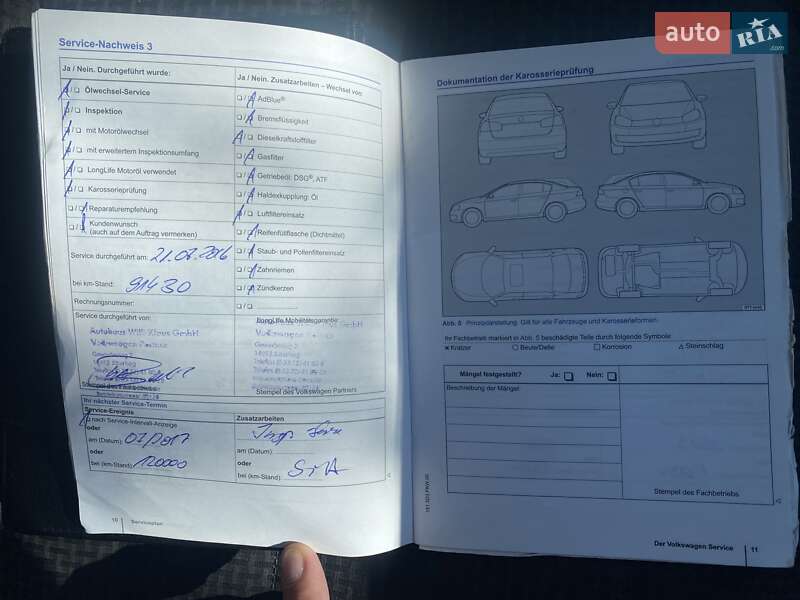 auto RIA .com
Service-Nachweis 3
Ja / Nein. Durchgeführt wurde:
Ölwechsel-Service
Inspektion
mit Motorölwechsel
mit erweitertem Inspektionsumfang
LongLife Motoröl verwendet
Karosserieprüfung
Reparaturempfehlung
Kundenwunsch
(auch auf dem Auftrag vermerken)
Service durchgeführt am: 21.07.2016
bei km-Stand: 91430
Rechnungsnummer:
Service durchgeführt von:
Autohaus Willi Klaus GmbH
Volkswagen Partner
Stempel des
Ihr nächster Service-Termin
Service-Ereignis
nach Service-Intervall-Anzeige
oder
am (Datum): 07/2017
oder
bei (km-Stand): 120000
Ja / Nein. Zusatzarbeiten – Wechsel von:
AdBlue®
Bremsflüssigkeit
Dieselkraftstofffilter
Gasfilter
Getriebeöl: DSG®, ATF
Haldexkupplung: Öl
Luftfiltereinsatz
Reifenfüllflasche (Dichtmittel)
Staub- und Pollenfiltereinsatz
Zahnriemen
Zündkerzen
LongLife Mobilitätsgarantie
Volkswagen
Stempel des Volkswagen Partners
Zusatzarbeiten
am (Datum):
oder
bei (km-Stand):
10 Serviceplan
Dokumentation der Karosserieprüfung
Abb. 5 Prinzipdarstellung: Gilt für alle Fahrzeuge und Karosserieformen.
Ihr Fachbetrieb markiert in Abb. 5 beschädigte Teile durch folgende Symbole:
× Kratzer ○ Beule/Delle □ Korrosion △ Steinschlag
Mängel festgestellt? Ja: Nein:
Beschreibung der Mängel:
Stempel des Fachbetriebs
Der Volkswagen Service 11